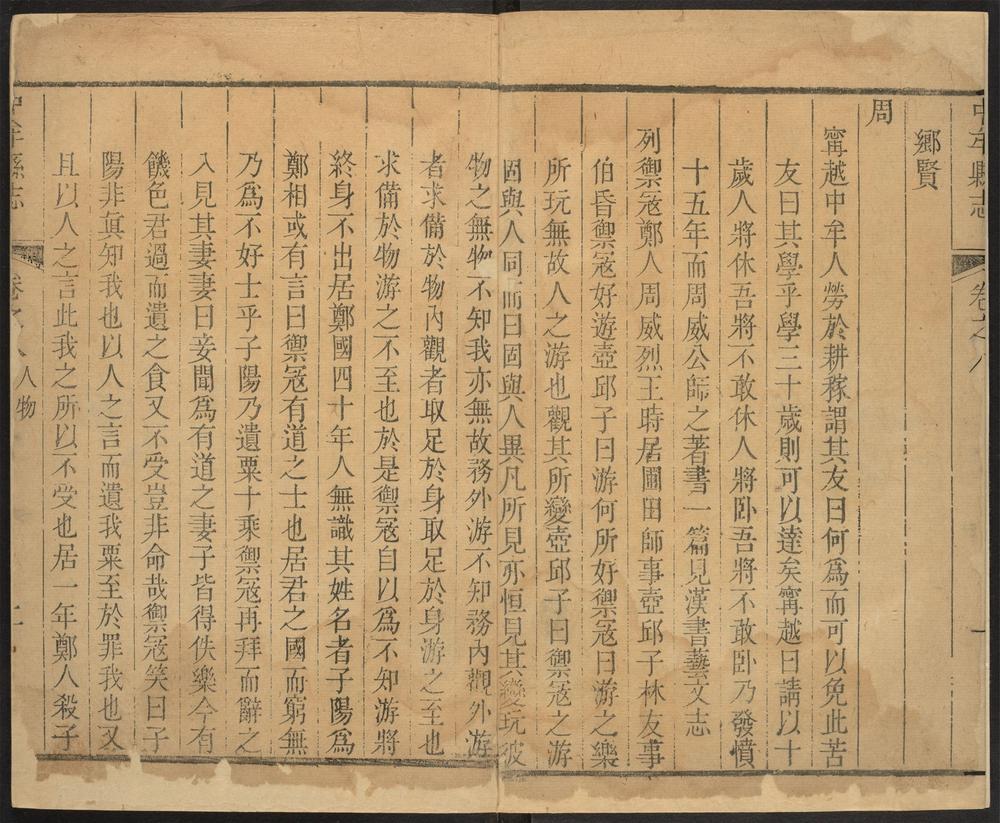 中牟縣志
卷之八
一
鄉賢
周
甯越中牟人勞於耕稼謂其友曰何爲而可以免此苦
友曰其學乎學三十歲則可以達矣甯越曰請以十
歲人將休吾將不敢休人將卧吾將不敢卧乃發憤
十五年而周威公師之著書一篇見漢書藝文志
列禦冦鄭人周威烈王時居圃田師事壺邱子林友事
伯昏禦冦好遊壺邱子曰游何所好禦冦曰游之樂
所玩無故人之游也觀其所變壺邱子曰禦冦之游
固與人同而曰固與人異凡所見亦恒見其變玩彼
物之無物不知我亦無故務外游不知務內觀外游
者求備於物內觀者取足於身取足於身游之至也
求備於物游之不至也於是禦冦自以爲不知游將
終身不出居鄭國四十年人無識其姓名者子陽爲
鄭相或有言曰禦冦有道之士也居君之國而窮無
乃爲不好士乎子陽乃遺粟十乘禦冦再拜而辭之
入見其妻妻曰妾聞爲有道之妻子皆得佚樂今有
饑色君過而遺之食又不受豈非命哉禦冦笑曰子
陽非眞知我也以人之言而遺我粟至於罪我也又
且以人之言此我之所以不受也居一年鄭人殺子
中牟縣志
卷之八
人物